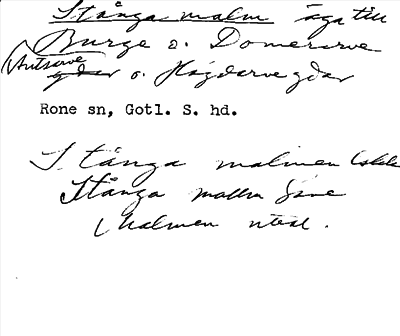 Stånga malm äga till
Burge o. Domerarve
(Autsarve
gdar o. Högdarve gdar
Rone sn, Gotl. S. hd.
Stånga malmen
Stånga
Malmen